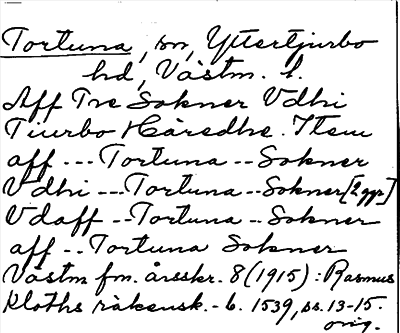 Tortuna, sn, Yttertjurbo
hd, Västm. l.
Aff Tre Sokner Vdhi
Tiurbo Häredhe. Item
aff --- Tortuna -- Sokner
Vdhi --- Tortuna -- Sokner [2 ggr]
Vdaff -- Tortuna -- Sokner
aff -- Tortuna Sokner
Västm fm. årsskr. 8 (1915): Rasmus
Kloths räkensk.-b. 1539, ss. 13-15.
orig.